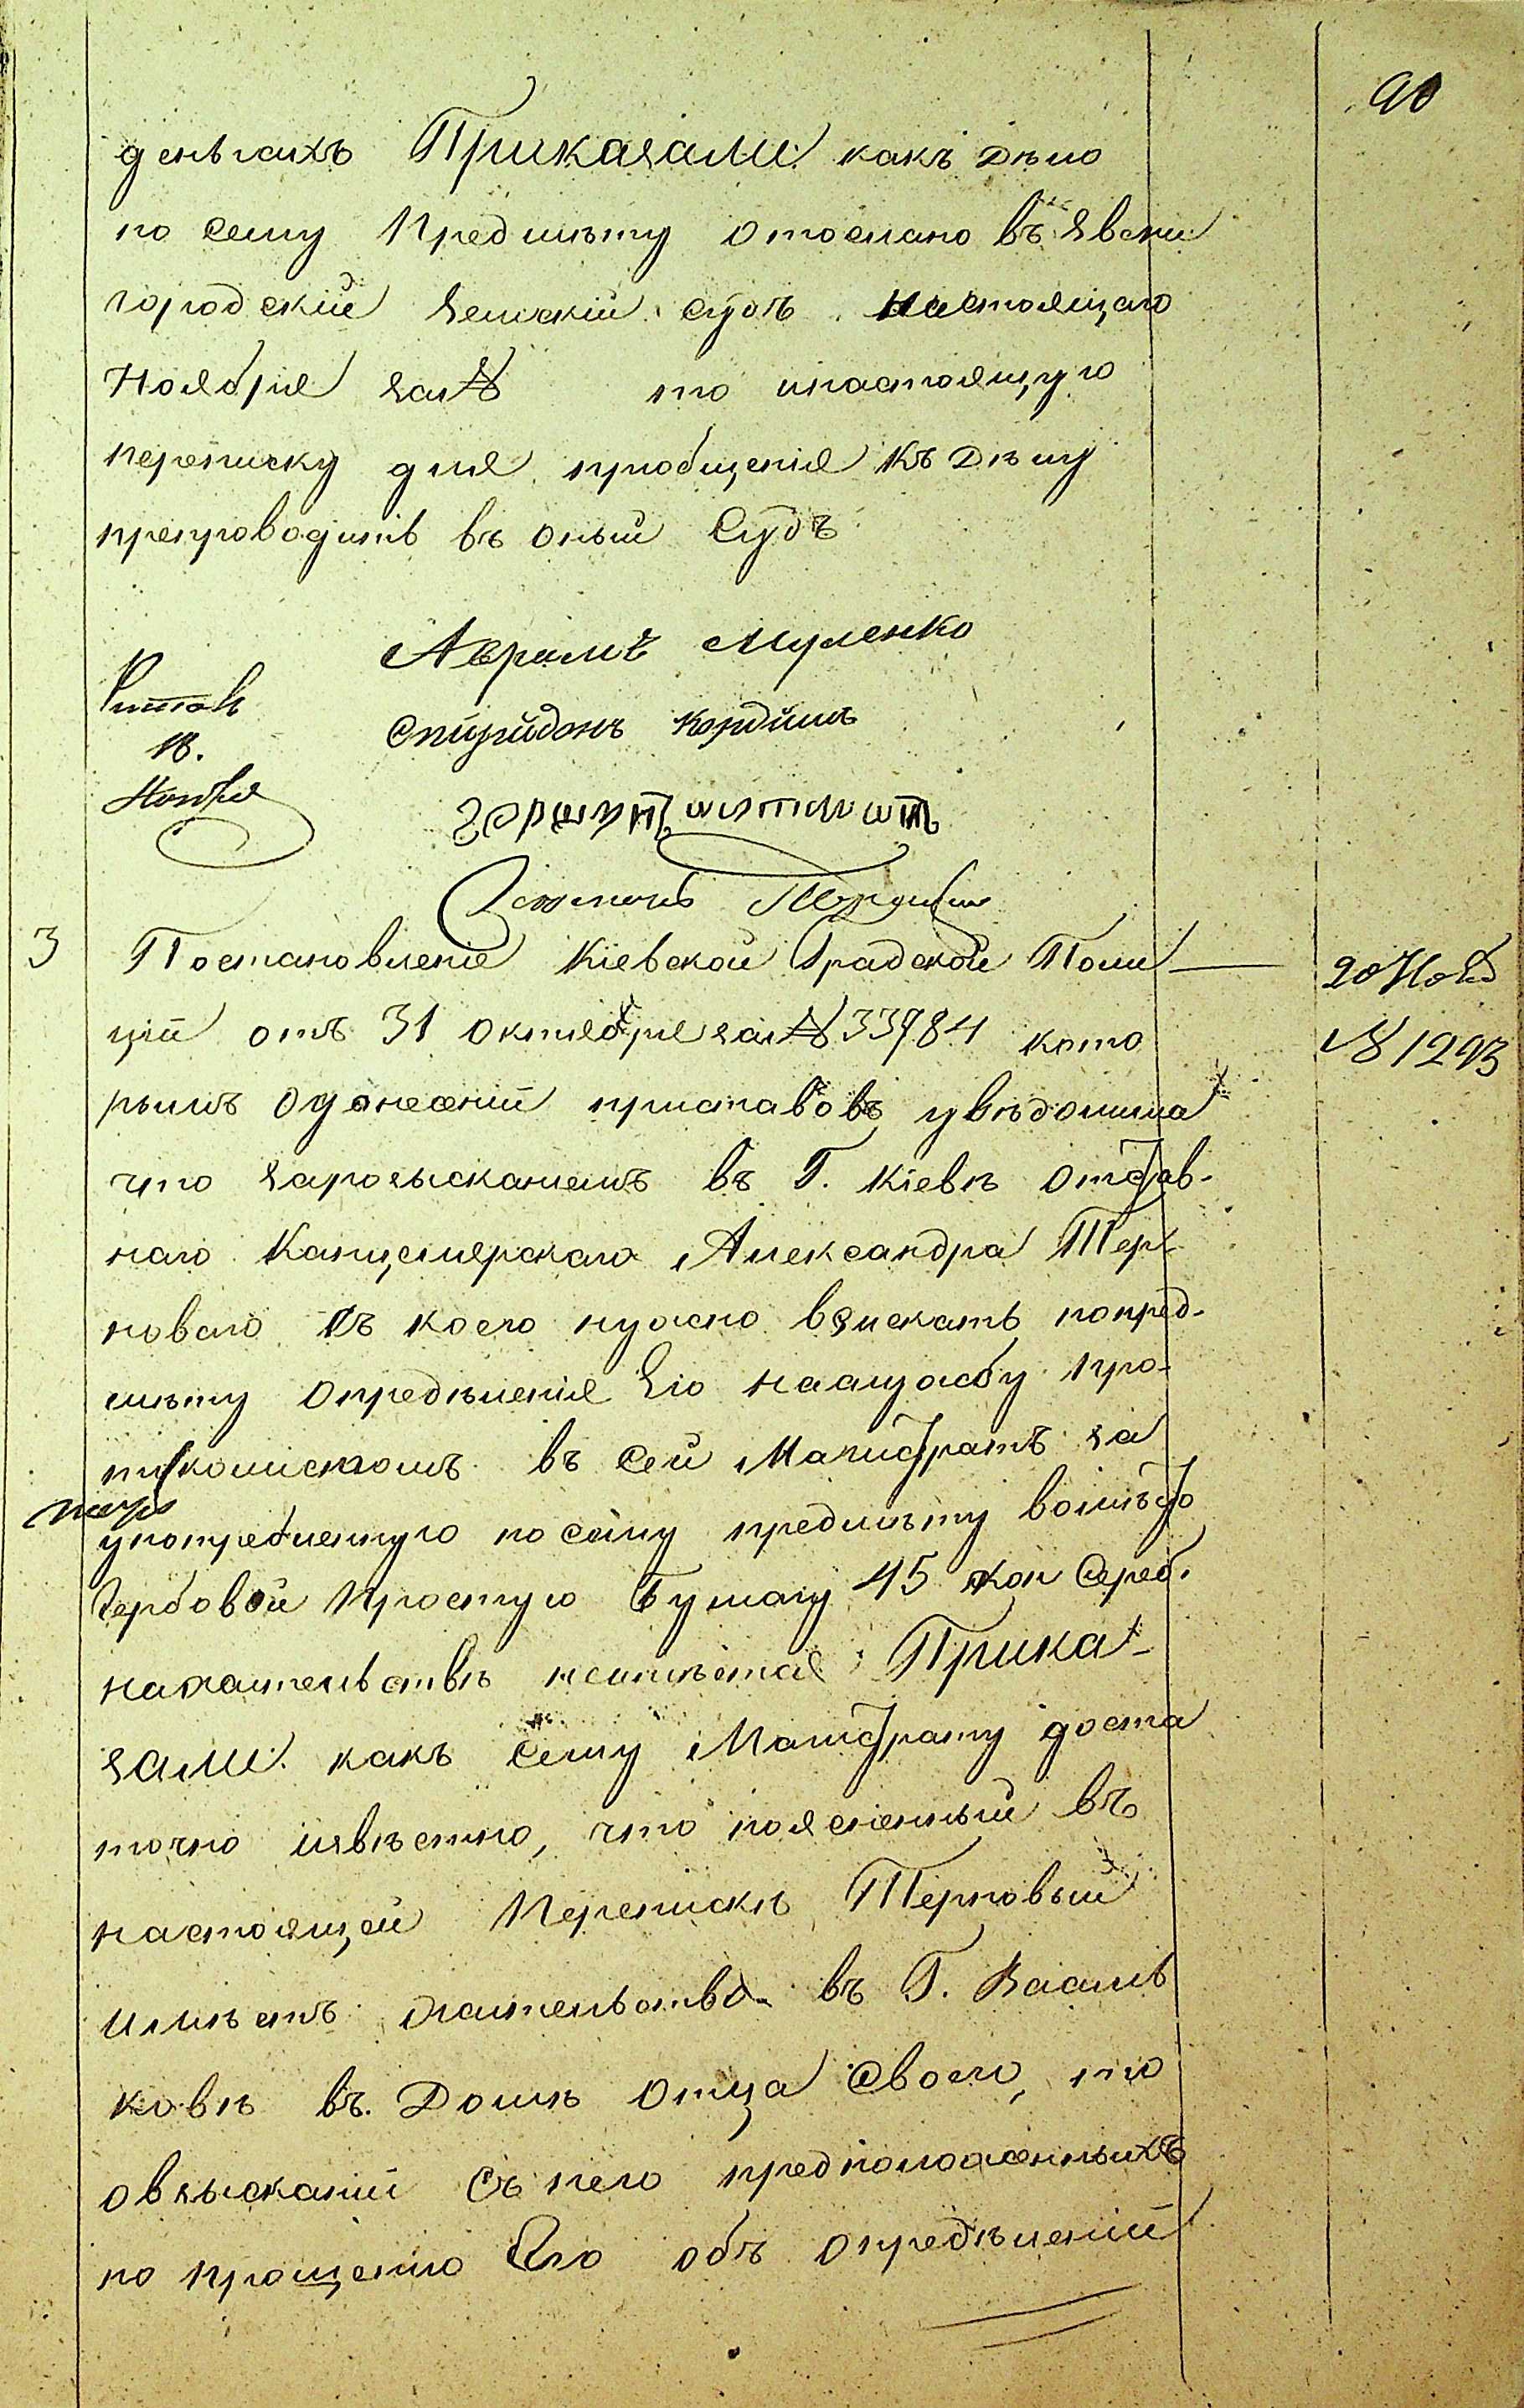 90
деньгахъ Приказали какъ дѣло
по сему предмѣту отослано въ Звени
городский Земский Судъ настоящаго
Ноября за № то инастоящую
переписку для приобщенія къ дѣлу
препроводить въ оный Судъ
Аврамъ Муленко
18.
Спиридонъ
Ноября
3 Постановленіе Кіевской Градской Поли
20 Нояб
ціи отъ 31 Октября за № 33784 кото
№ 1293
рымъ одонесеніи приставовъ увѣдомила
что зарозысканіемъ въ Г. Кіевѣ отстав-
наго Канцелярскаго Александра Тер-
новаго съ коего нужно взыскать попред-
мѣту опредѣленія Его наслужбу про-
токолистомъ въ сей Магистратъ за
употребленную по сему предмѣту вомѣсто
Гербовой простую бумагу 45 коп Сереб.
нажительствѣ неимѣется Прика-
зали. какъ сему Магистрату доста
точно извѣстно, что поясненный въ
настоящей перепискѣ Терновый
имѣетъ жительство въ Г. Василь
ковѣ въ Домѣ отца своего, то
овзысканіи съ него предположенныхъ
по прошенію Его объ опредѣленіи